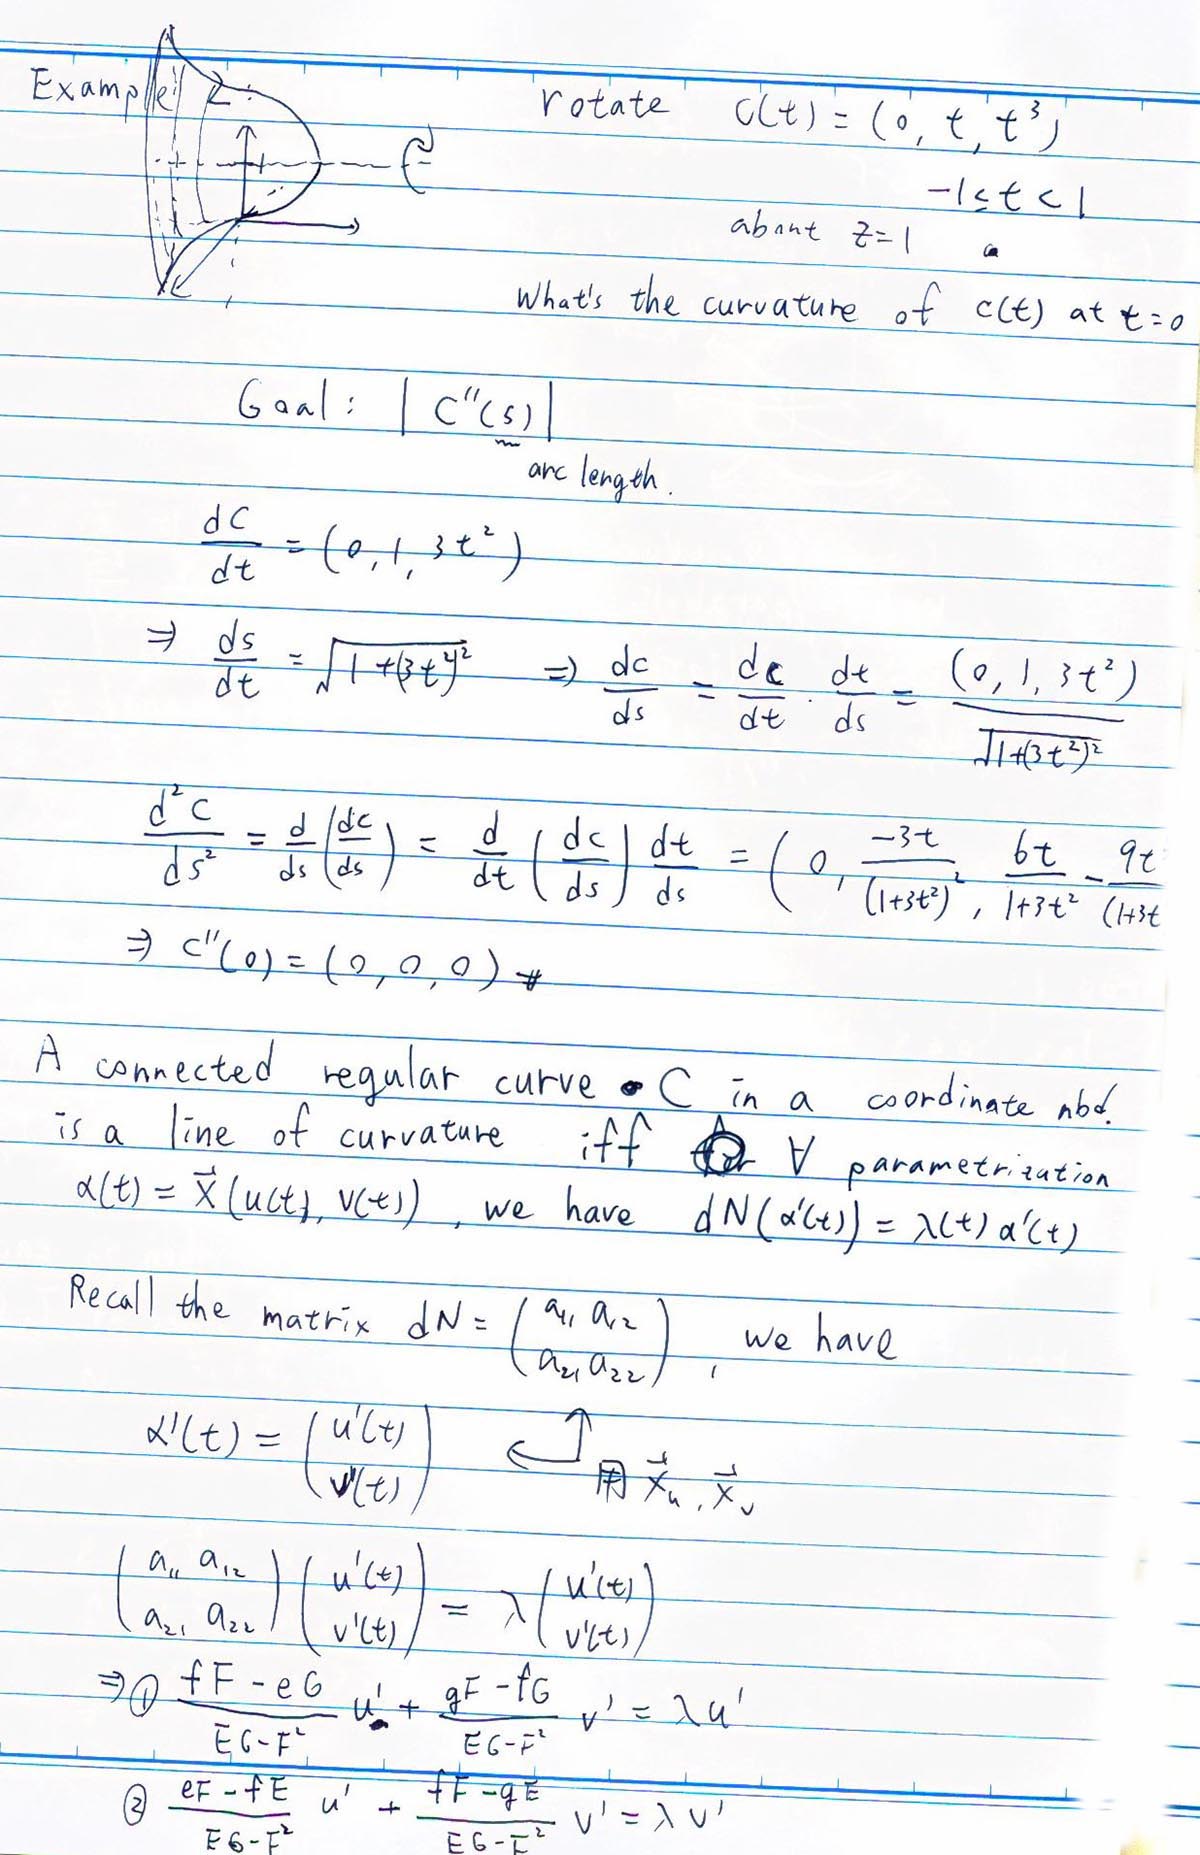 Example
rotate C(t) = (0, t, t³)
-1≤t<1
about z=1
What's the curvature of c(t) at t=0
Goal: |C''(s)|
arc length.
dC/dt = (0, 1, 3t²)
⇒ ds/dt = √(1+(3t²)²) ⇒ dc/ds = dc/dt · dt/ds = (0, 1, 3t²)/√(1+(3t²)²)
d²C/ds² = d/ds (dc/ds) = d/dt (dc/ds) dt/ds = (0, -3t/(1+3t²)², 6t/(1+3t²) - 9t/(1+3t
⇒ C''(0) = (0, 0, 0) #
A connected regular curve C in a coordinate nbd.
is a line of curvature iff ∀ parametrization
α(t) = X⃗(u(t), v(t)), we have dN(α'(t)) = λ(t) α'(t)
Recall the matrix dN = (a₁₁ a₁₂ / a₂₁ a₂₂), we have
α'(t) = (u'(t) / v'(t))
用 X⃗ᵤ, X⃗ᵥ
(a₁₁ a₁₂ / a₂₁ a₂₂) (u'(t) / v'(t)) = λ (u'(t) / v'(t))
⇒ ① (fF-eG)/(EG-F²) u' + (gF-fG)/(EG-F²) v' = λu'
② (eF-fE)/(EG-F²) u' + (fF-gE)/(EG-F²) v' = λv'